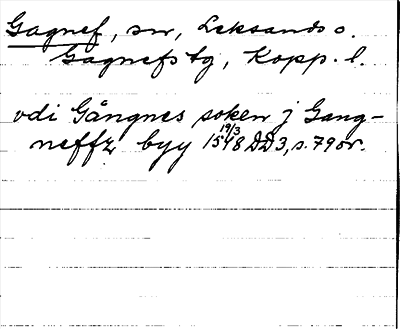 Gagnef, sn, Leksands o.
Gagnefs tg, Kopp. l.
vdi Gångnes soken j Gang-
neffz byy 1548 19/3 DD3, s. 79 or.